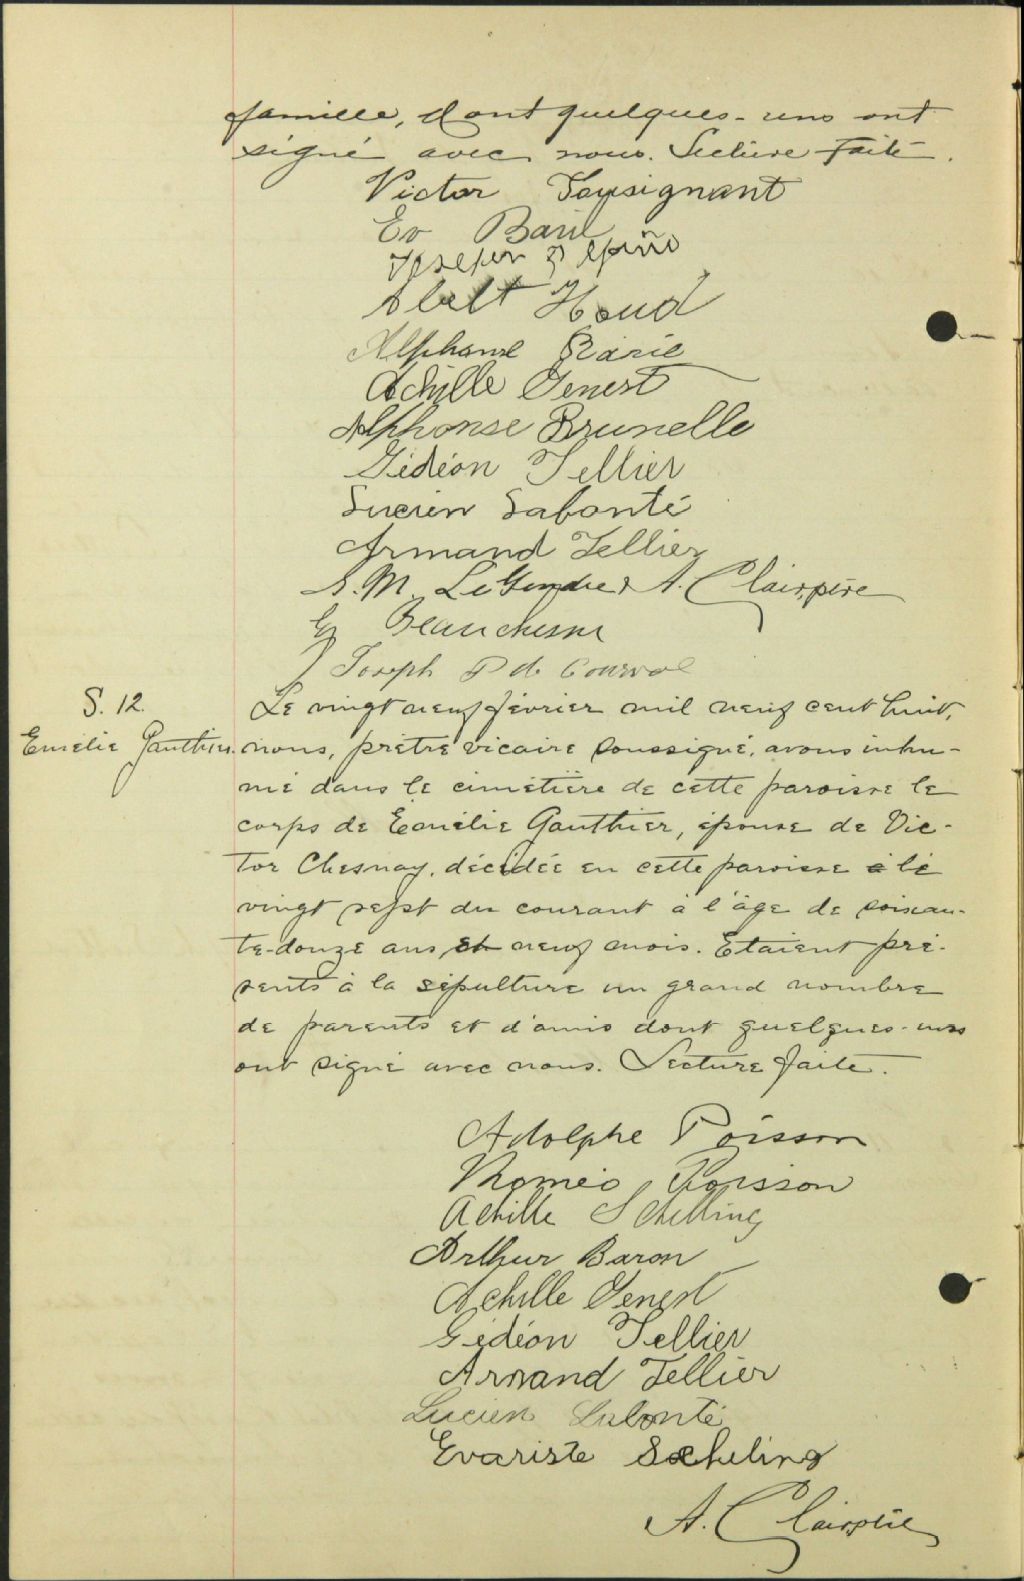 famille, dont quelques-uns ont
signé avec nous. Lecture faite.
Victor Tousignant
Ev Baril
Joseph
Abelt Houd
Alphonse Baril
Achille Genest
Alphonse Brunelle
Gédéon Tellier
Lucien Labonté
Armand Tellier
S. M. LeGendre A. Clair, ptre
Beauchesne
Joseph P de Courval
S. 12.
Emélie Gauthier.
Le vingt neuf février mil neuf cent huit,
nous, prêtre vicaire soussigné, avons inhu-
mé dans le cimetière de cette paroisse le
corps de Emélie Gauthier, épouse de Vic-
tor Chesnay, décédée en cette paroisse le
vingt sept du courant à l'âge de soixan-
te-douze ans, et neuf mois. Etaient pré-
sents à la sépulture un grand nombre
de parents et d'amis dont quelques-uns
ont signé avec nous. Lecture faite.
Adolphe Poisson
Roméo Poisson
Achille Schelling
Arthur Baron
Achille Genest
Gédéon Tellier
Armand Tellier
Lucien Labonté
Evariste Scheling
A. Clair, ptre